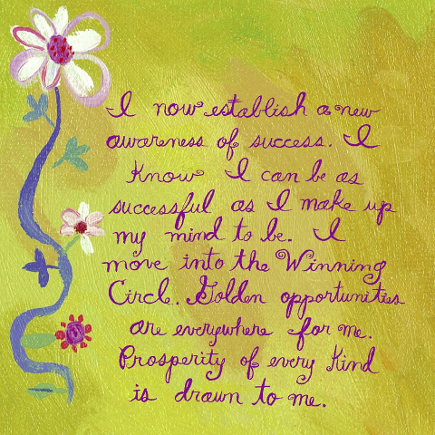 I now establish a new
awareness of success. I
Know I can be as
successful as I make up
my mind to be. I
move into the Winning
Circle. Golden opportunities
are everywhere for me.
Prosperity of every Kind
is drawn to me.